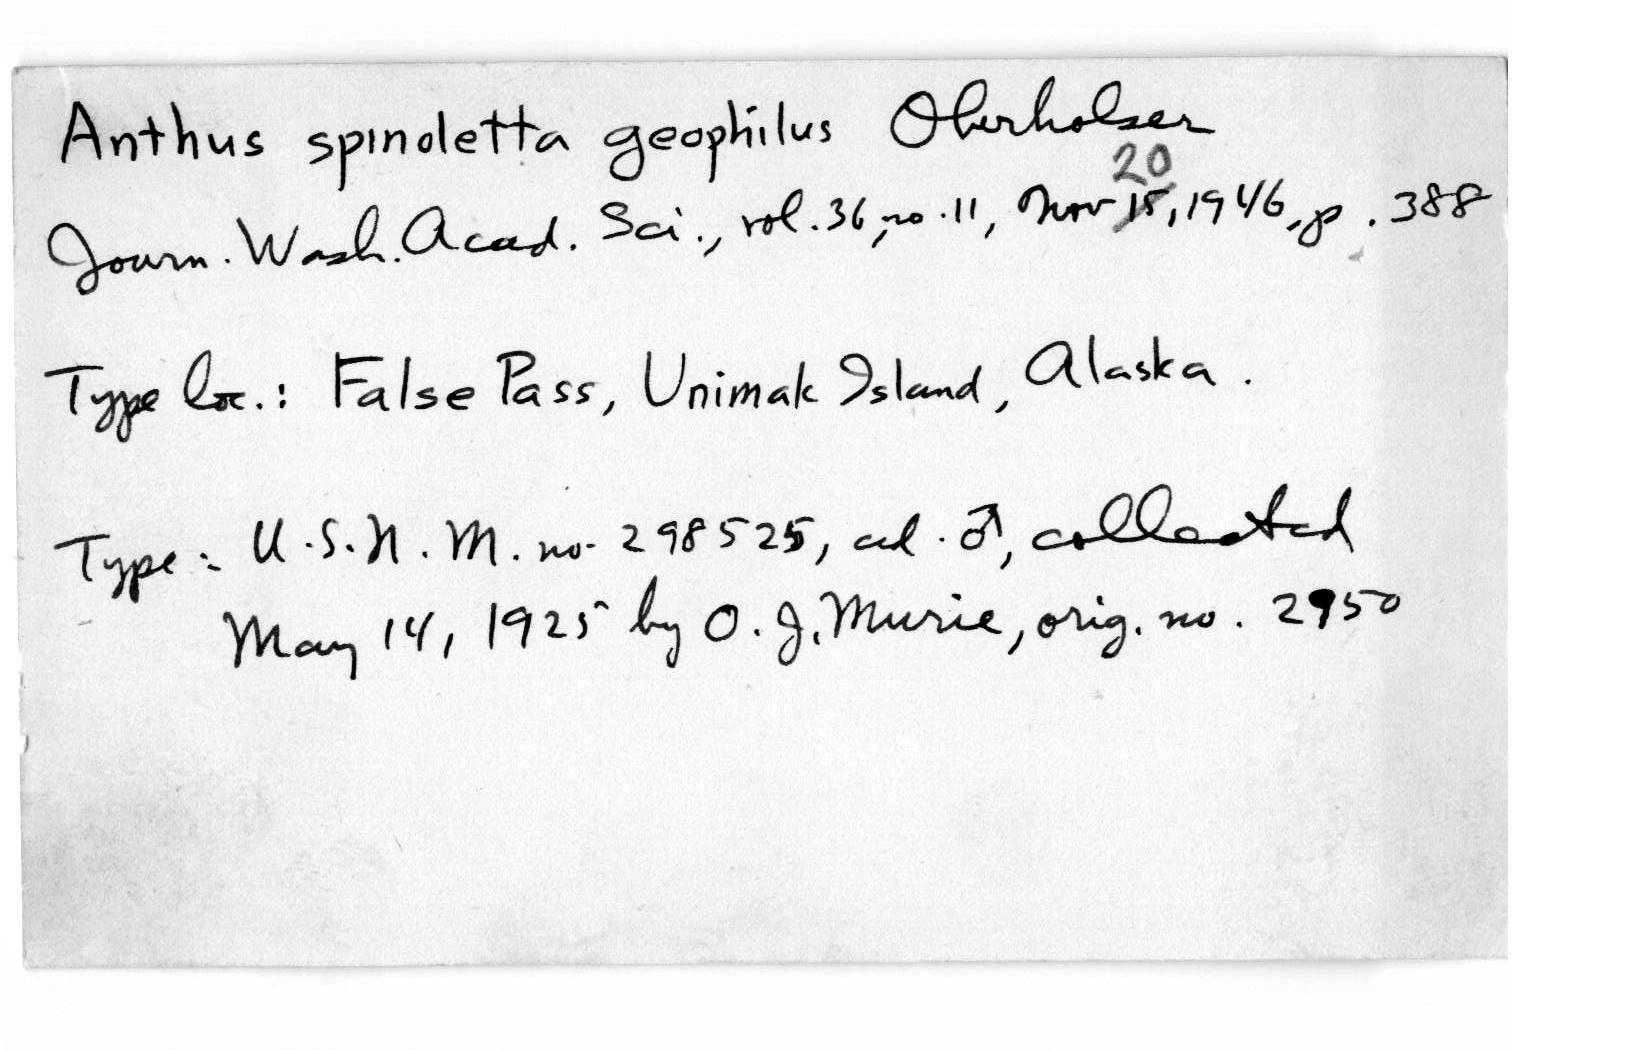 Anthus spinoletta geophilus Oberholser
Journ. Wash. Acad. Sci., vol. 36, no. 11, Nov 15, 20, 1946, p. 388
Type loc.: False Pass, Unimak Island, Alaska.
Type: U.S.N.M. no. 298525, ad. ♂, collected
May 14, 1925 by O. J. Murie, orig. no. 2950